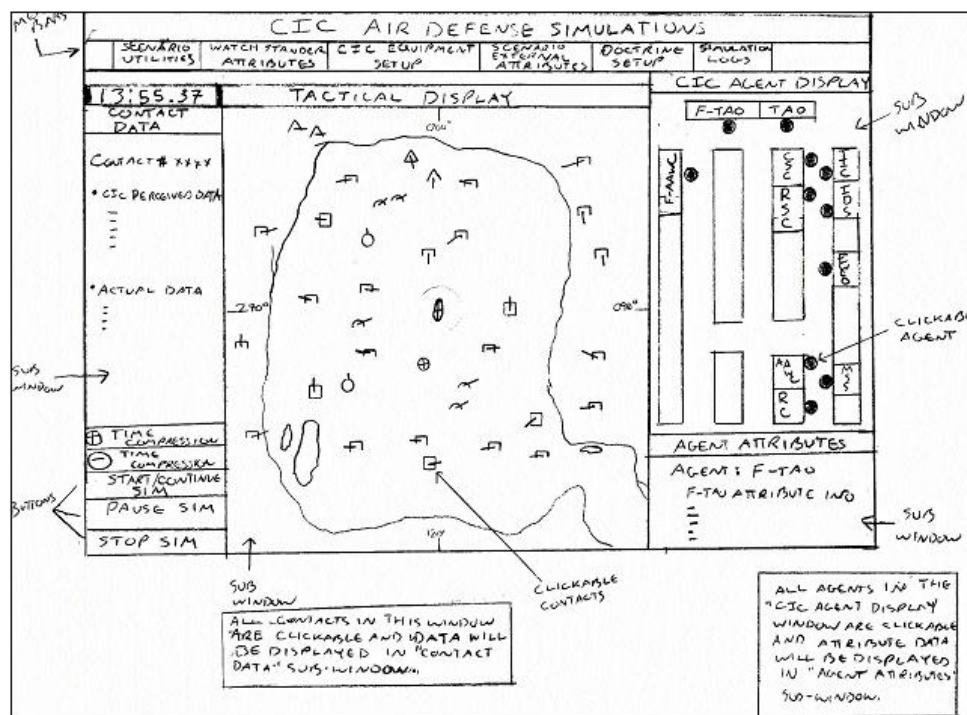 CIC AIR DEFENSE SIMULATIONS
SCENARIO UTILITIES
WATCH STANDER ATTRIBUTES
CIC EQUIPMENT SETUP
SCENARIO EXTERNAL ATTRIBUTES
DOCTRINE SETUP
SIMULATION LOGS
13:55.37
CONTACT DATA
CONTACT # XXXX
• CIC PERCEIVED DATA
• ACTUAL DATA
SUB WINDOW
⊕ TIME COMPRESSION
⊖ TIME COMPRESSION
START/CONTINUE SIM
PAUSE SIM
STOP SIM
BUTTONS
TACTICAL DISPLAY
000°
270°
090°
SUB WINDOW
CLICKABLE CONTACTS
ALL CONTACTS IN THIS WINDOW
ARE CLICKABLE AND DATA WILL
BE DISPLAYED IN "CONTACT
DATA" SUB-WINDOW.
CIC AGENT DISPLAY
F-TAO
TAO
F-AAWC
CSC
RSC
TIC
IDS
EWO
AAWC
RC
MSS
SUB WINDOW
CLICKABLE AGENT
AGENT ATTRIBUTES
AGENT: F-TAO
F-TAO ATTRIBUTE INFO
SUB WINDOW
ALL AGENTS IN THE
"CIC AGENT DISPLAY
WINDOW ARE CLICKABLE
AND ATTRIBUTE DATA
WILL BE DISPLAYED
IN "AGENT ATTRIBUTES"
SUB-WINDOW.